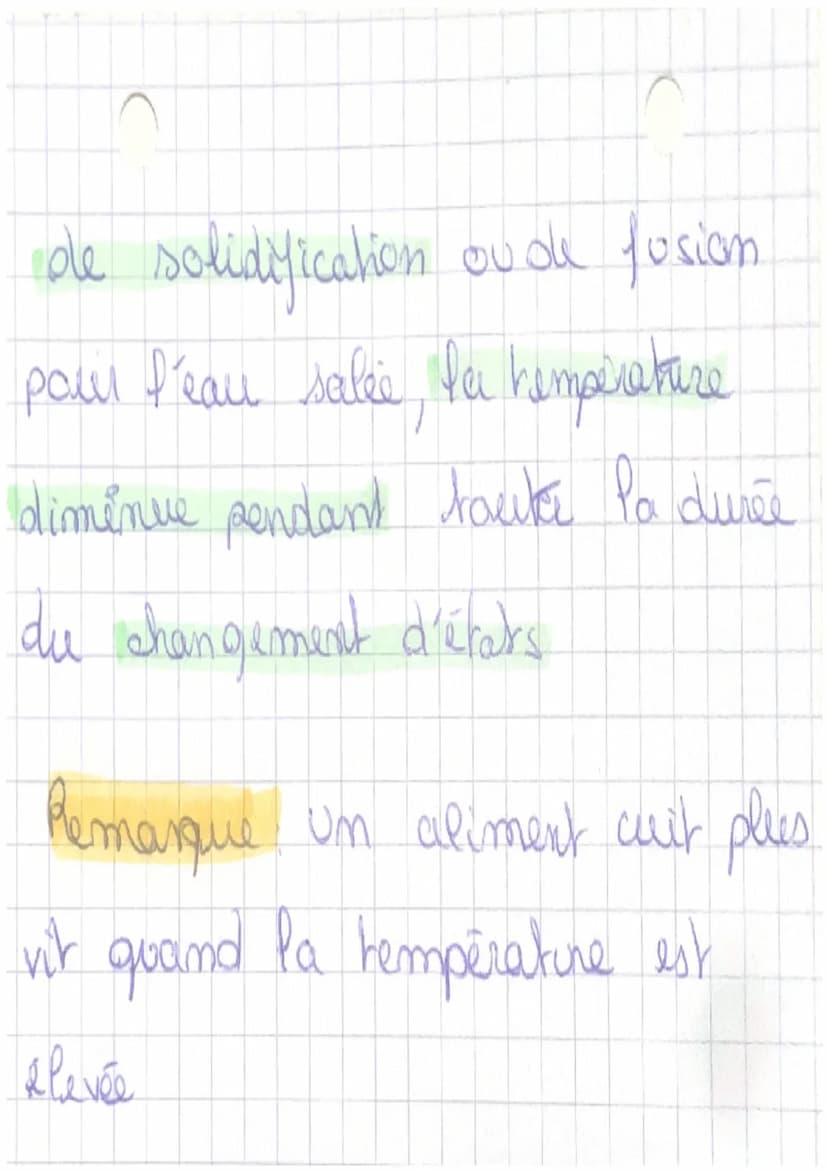 de solidification ou de fusion
pour l'eau salée, la température
diminue pendant toute la durée
du changement d'états
Remarque : un aliment cuit plus
vit quand la température est
élevée